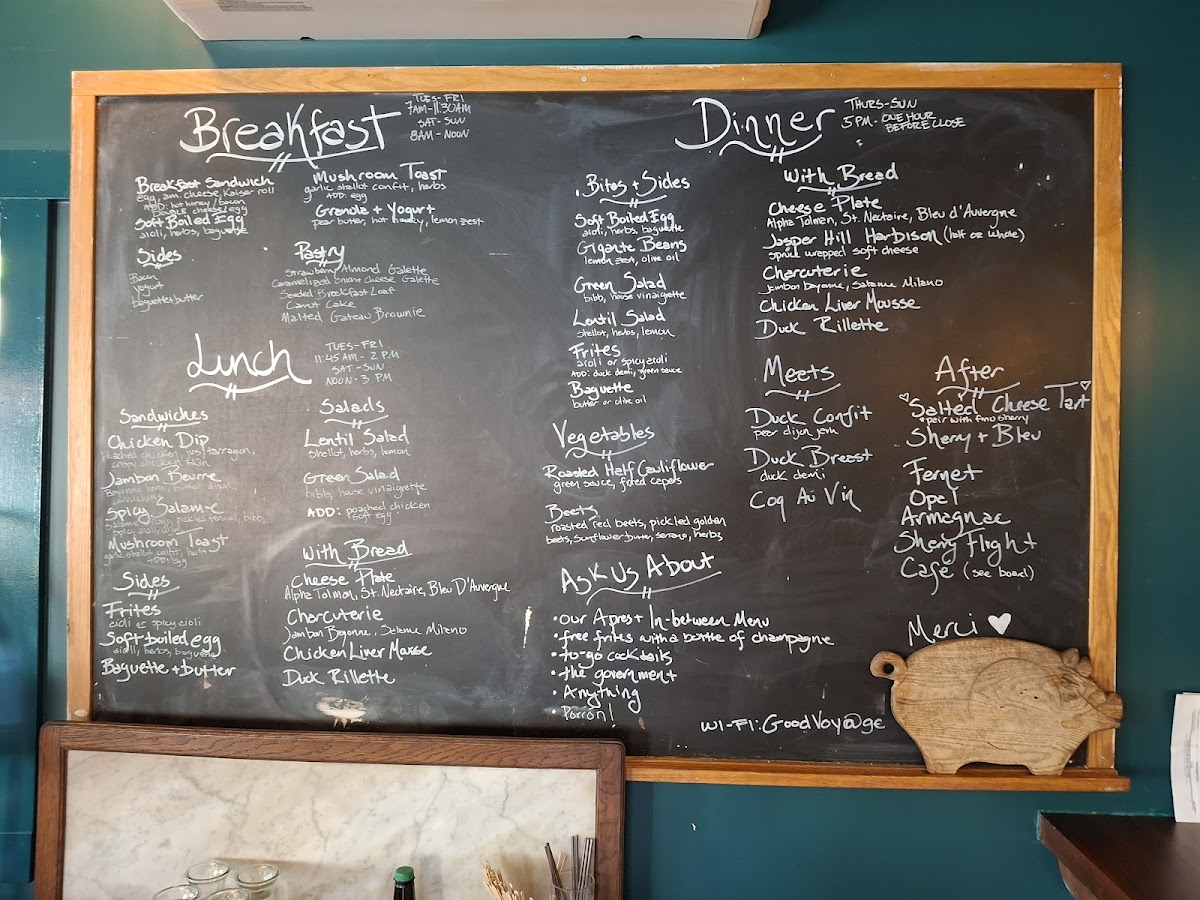 Breakfast
TUES-FRI
7AM-11:30AM
SAT-SUN
8AM-NOON
Breakfast Sandwich
egg, am. cheese, Kaiser roll
ADD: hot honey / bacon
double cheese/egg
Soft Boiled Egg
aioli, herbs, baguette
Sides
Bacon
yogurt
baguette+butter
Mushroom Toast
garlic shallot confit, herbs
ADD: egg
Granola + Yogurt
pear butter, hot honey, lemon zest
Pastry
Strawberry Almond Galette
Caramelized onion cheese Galette
Seeded Breakfast Loaf
Carrot Cake
Malted Gateau Brownie
Lunch
TUES-FRI
11:45AM-2PM
SAT-SUN
NOON-3PM
Sandwiches
Chicken Dip
Poached chicken, jus, tarragon,
crispy chicken skin
Jambon Beurre
Spicy Salame
pickled fennel, bibb,
spicy aioli
Mushroom Toast
garlic shallot confit, herbs
ADD: egg
Sides
Frites
aioli or spicy aioli
Soft-boiled egg
aioli, herbs, baguette
Baguette + butter
Salads
Lentil Salad
Shallot, herbs, lemon
Green Salad
bibb, house vinaigrette
ADD: poached chicken
soft egg
With Bread
Cheese Plate
Alpha Tolman, St. Nectaire, Bleu D'Auvergne
Charcuterie
Jambon Bayonne, Salame Milano
Chicken Liver Mousse
Duck Rillette
Dinner
THURS-SUN
5PM-ONE HOUR
BEFORE CLOSE
Bites + Sides
Soft Boiled Egg
aioli, herbs, baguette
Gigante Beans
lemon zest, olive oil
Green Salad
bibb, house vinaigrette
Lentil Salad
shallot, herbs, lemon
Frites
aioli or spicy aioli
ADD: duck demi, green sauce
Baguette
butter or olive oil
Vegetables
Roasted Half Cauliflower
green sauce, fried capers
Beets
roasted red beets, pickled golden
beets, sunflower butter, serrano, herbs
Ask Us About
• our Apres + In-between Menu
• free frites with a bottle of champagne
• to-go cocktails
• the government
• Anything
• Porron!
With Bread
Cheese Plate
Alpha Tolman, St. Nectaire, Bleu d'Auvergne
Jasper Hill Harbison (half or whole)
spruce wrapped soft cheese
Charcuterie
Jambon bayonne, Salame Milano
Chicken Liver Mousse
Duck Rillette
Meats
Duck Confit
pear dijon jam
Duck Breast
duck demi
Coq Au Vin
After
Salted Cheese Tart
pair with fino sherry
Sherry + Bleu
Fernet
Opal
Armagnac
Sherry Flight
Café (see board)
Merci
WI-FI: GoodVoy@ge